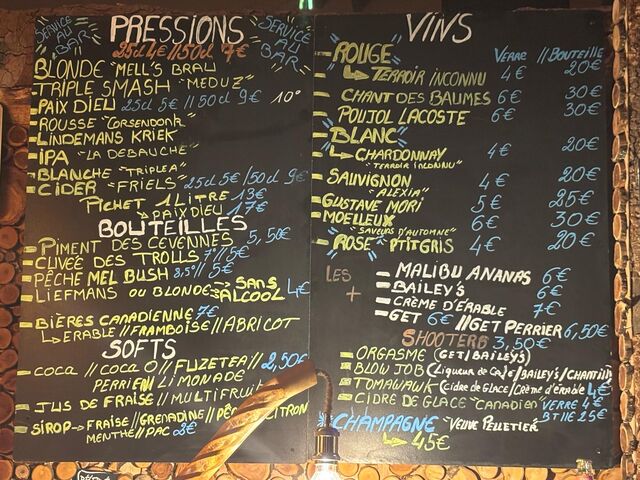 PRESSIONS
SERVICE AU BAR
SERVICE AU BAR
25cl 4€ // 50cl 7€
BLONDE "MELL'S BRAU
TRIPLE SMASH "MEDUZ"
PAIX DIEU 25cl 5€ // 50cl 9€ 10°
ROUSSE "GORSENDONK
LINDEMANS KRIEK
IPA "LA DEBAUCHE"
BLANCHE "TRIPLEA"
CIDER "FRIELS" 25cl 5€ / 50cl 9€
PICHET 1 LITRE 13€
PAIX DIEU 17€
BOUTEILLES
PIMENT DES CEVENNES 5,50€
CUVÉE DES TROLLS 7° // 5€
PÊCHE MEL BUSH 8,5° // 5€
LIEFMANS OU BLONDE → SANS ALCOOL 4€
BIÈRES CANADIENNE 7€
ERABLE // FRAMBOISE // ABRICOT
SOFTS
COCA // COCA O // FUZETEA // 2,50€
PERRIER // LIMONADE
JUS DE FRAISE // MULTIFRUIT
SIROP → FRAISE // GRENADINE // CITRON
MENTHE // PAC 2€
VINS
ROUGE VERRE // BOUTEILLE
TERROIR INCONNU 4€ 20€
CHANT DES BAUMES 6€ 30€
POUJOL LACOSTE 6€ 30€
BLANC
CHARDONNAY 4€ 20€
"TERROIR INCONNU"
SAUVIGNON 4€ 20€
"ALEXIA"
GUSTAVE MORI 5€ 25€
MOELLEUX 6€ 30€
"SAVEURS D'AUTOMNE"
ROSE "PTIT GRIS 4€ 20€
LES +
MALIBU ANANAS 6€
BAILEY'S 6€
CRÈME D'ÉRABLE 7€
GET 6€ // GET PERRIER 6,50€
SHOOTERS 3,50€
ORGASME (GET/BAILEY'S)
BLOW JOB (LIQUEUR DE CAFÉ/BAILEY'S/CHANTILLY
TOMAWAWK (CIDRE DE GLACE/CRÈME D'ÉRABLE 4€
CIDRE DE GLACE "CANADIEN" VERRE 4€
BTLLE 25€
CHAMPAGNE "VEUVE PELLETIER"
45€